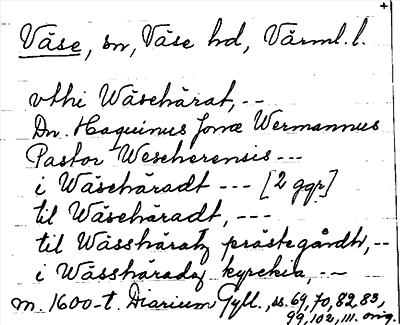 Väse, sn, Väse hd, Värml. l.
vthi Wäsehärat, --
Dn. Haquinus Jonæ Wermannus
Pastor Weseherensis ---
i Wäsehäradt --- [2 ggr]
til Wäsehäradt, ---
til Wässhäratz prästegårdh, --
i Wässhäradz kyrckia, --
m. 1600-t. Diarium Gyll., ss. 69, 70, 82, 83,
99, 102, 111. orig.